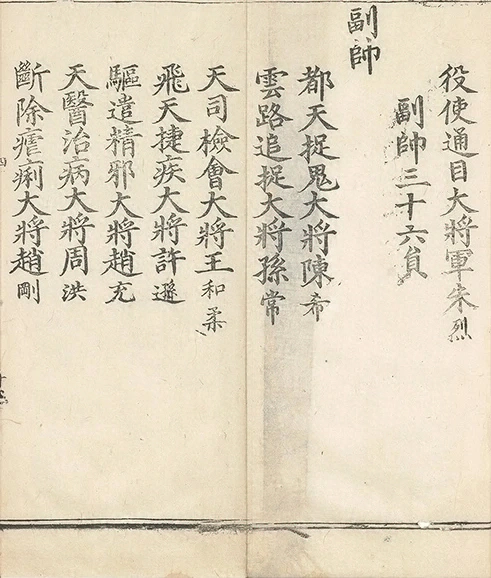 役使通目大將軍朱烈
副帥三十六負
副帥
都天捉鬼大將陳希
雲路追捉大將孫常
天司檢會大將王和柔
飛天捷疾大將許遜
驅遣精邪大將趙充
天醫治病大將周洪
斷除瘧痢大將趙剛